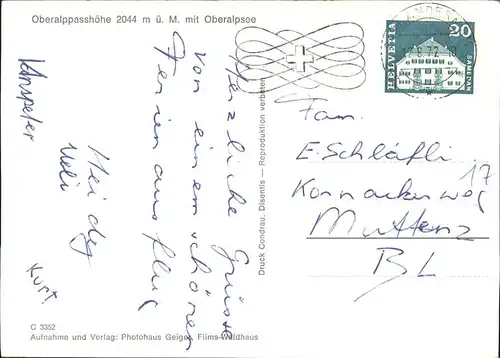 Oberalppasshöhe 2044 m ü. M. mit Oberalpsee
Herzliche Grüsse
von einem schönen
Ferienausflug
Heidy
Ueli
Hanspeter
Kurt
C 3352
Aufnahme und Verlag: Photohaus Geiger, Flims-Waldhaus
Druck Condrau, Disentis — Reproduktion verboten
HELVETIA
20
SAMEDAN
72
Fam.
E. Schläfli
Kornackerweg 17
Muttenz
BL